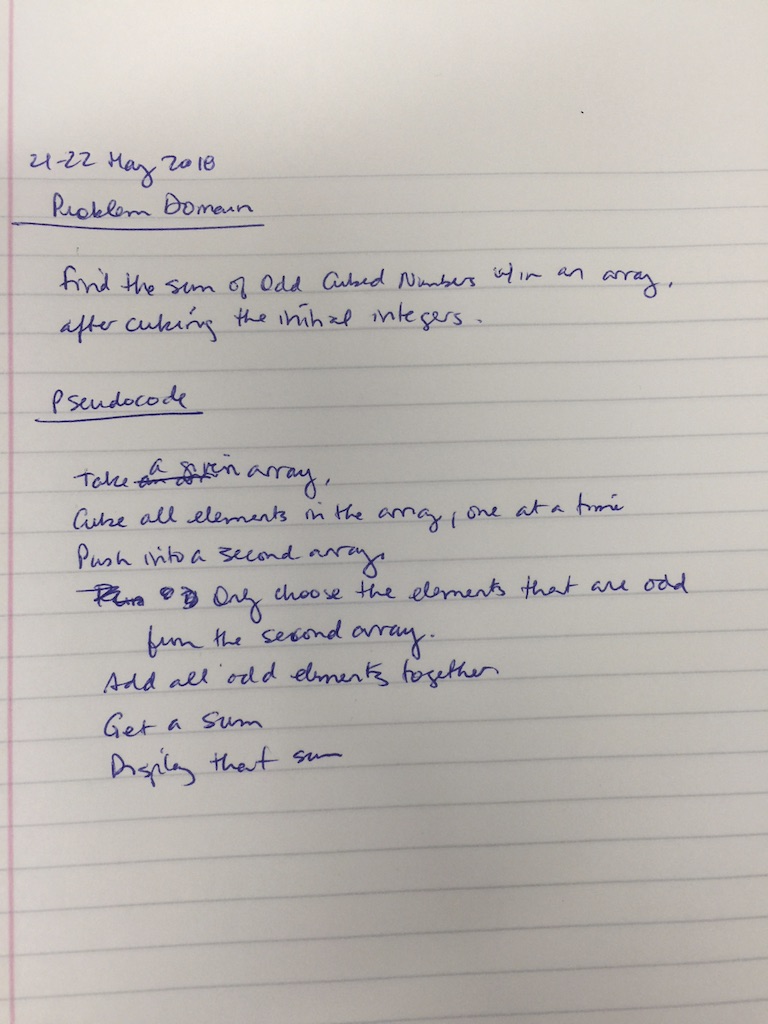 21-22 May 2018
Problem Domain
find the sum of Odd Cubed Numbers w/in an array,
after cubing the initial integers.
Pseudocode
Take a given array,
Cube all elements in the array, one at a time
Push into a second array,
Only choose the elements that are odd
from the second array.
Add all odd elements together
Get a sum
Display that sum